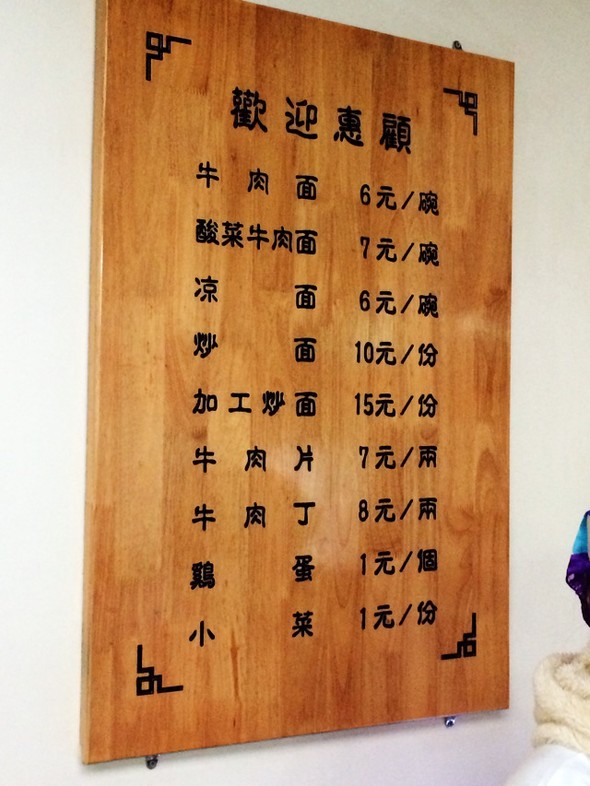 歡迎惠顧
牛肉面 6元/碗
酸菜牛肉面 7元/碗
凉面 6元/碗
炒面 10元/份
加工炒面 15元/份
牛肉片 7元/兩
牛肉丁 8元/兩
鷄蛋 1元/個
小菜 1元/份